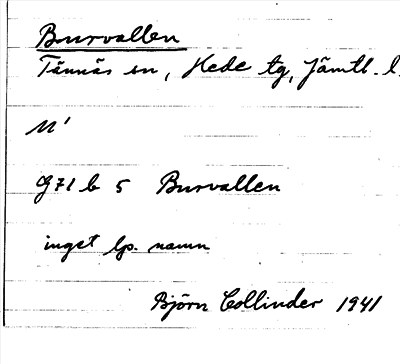 Burvallen
Tännäs sn, Hede tg, Jämtl. l.
M'
G 71 b 5 Burvallen
inget lp. namn
Björn Collinder 1941